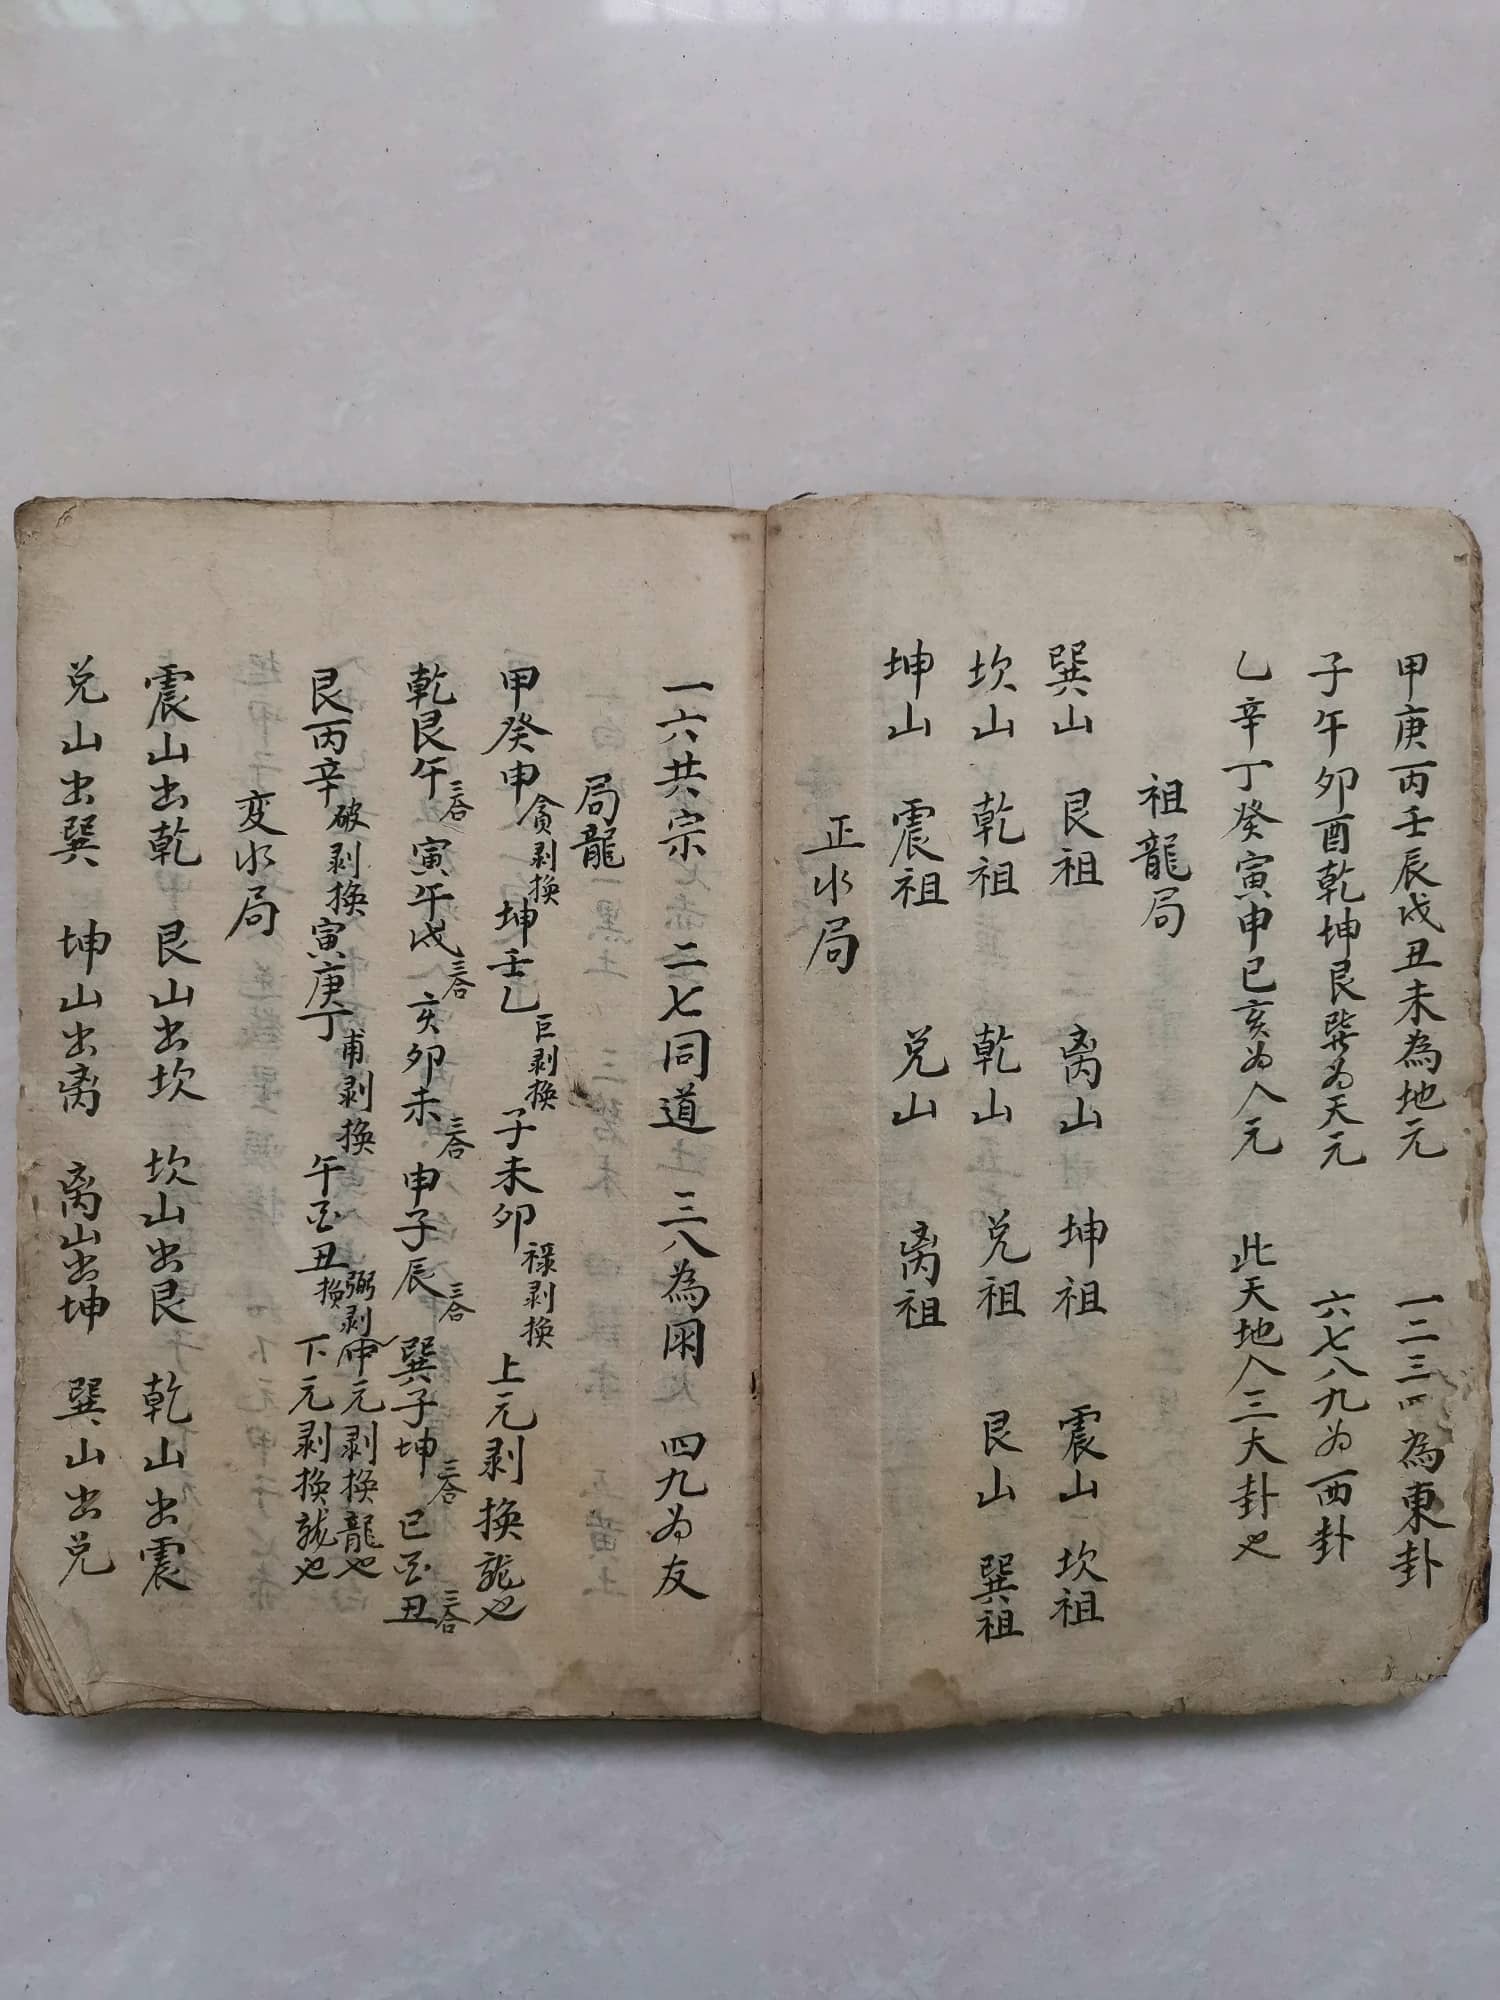 甲庚丙壬辰戌丑未為地元　一二三四為東卦
子午卯酉乾坤艮巽为天元　六七八九为西卦
乙辛丁癸寅申巳亥为人元　此天地人三大卦也
祖龍局
巽山　艮祖　离山　坤祖　震山　坎祖
坎山　乾祖　乾山　兑祖　艮山　巽祖
坤山　震祖　兑山　离祖
正水局
一六共宗　二七同道　三八為朋　四九为友
局龍
甲癸申貪剥換　坤壬乙巨剥換　子未卯禄剥換　上元剥換龍也
乾艮午三合　寅午戌三合　亥卯未三合　申子辰三合　巽子坤三合　巳酉丑三合
艮丙辛破剥換　寅庚丁甫剥換　午酉丑弼剥換　中元剥換龍也　下元剥換龍也
变水局
震山出乾　艮山出坎　坎山出艮　乾山出震
兑山出巽　坤山出离　离山出坤　巽山出兑